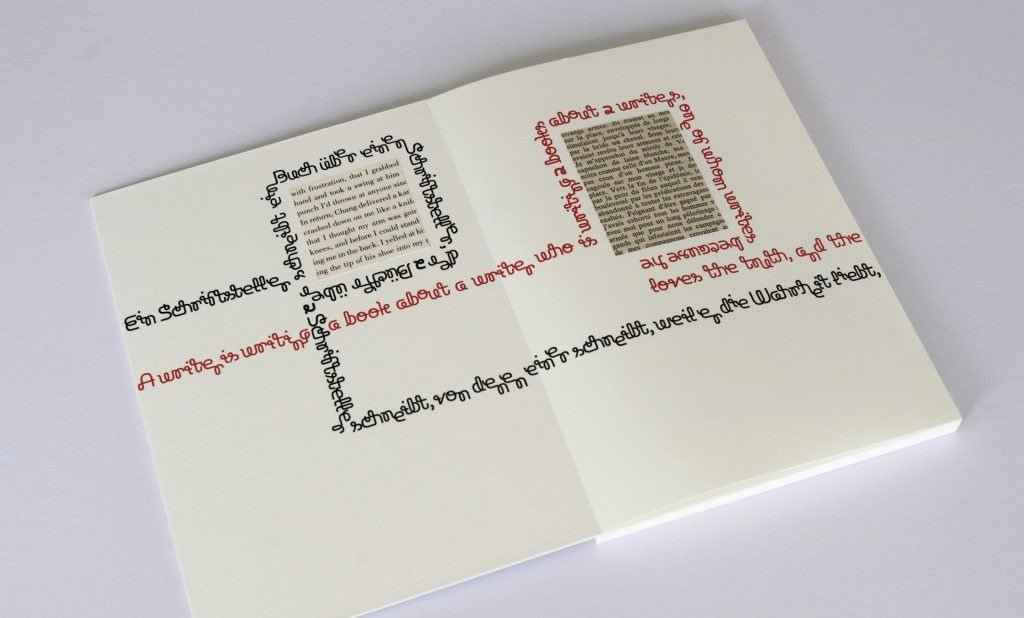 Ein Schriftsteller schreibt ein Buch über einen Schriftsteller, der 2 Bücher über 2 Schriftsteller schreibt, von denen einer schreibt, weil er die Wahrheit liebt,
with frustration, that I grabbed
hand and took a swing at him
punch I'd thrown at anyone sinc
In return, Chang delivered a kar
crashed down on me like a kni
that I thought my arm was goin
knees, and before I could stand
ing me in the back. I yelled at hi
ing the tip of his shoe into my t
A writer is writing a book about a writer who is writing 2 books about 2 writers, one of whom writes because he
loves the truth, and the
étrange armée. Ils étaient au moi
sur la place, enveloppés de longs
simulaient jusqu'à leurs visages;
par la bride un cheval. Sous leur
avaient revêtu leurs armures et cei
m'approchai du miroir de V
capuchon de laine blanche, V
noire comme celle d'un Maure, me
pas ceux d'un homme pieux.
cagoule sur mon visage et je de
place. Vers la fin de l'épidémie, il
par la peur du fléau auquel il ven
bouleversé par les prédications des
abandonné à toutes les extravagan
l'avenir. Feignant d'être gagné pa
j'avais exhorté tous les hommes v
avec moi pour un long pèlerinage
armés que pour nous défendre
gands qui infestaient les campagn
de mes compagnons croyaient,